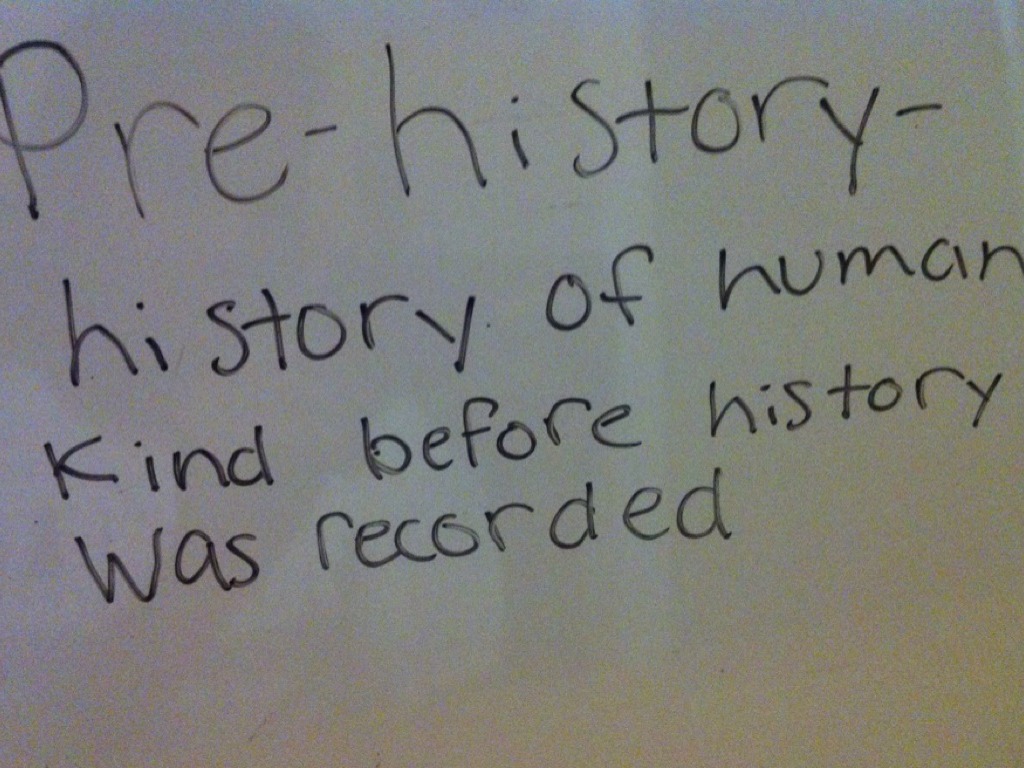 Pre-history-
history of human
Kind before history
Was recorded